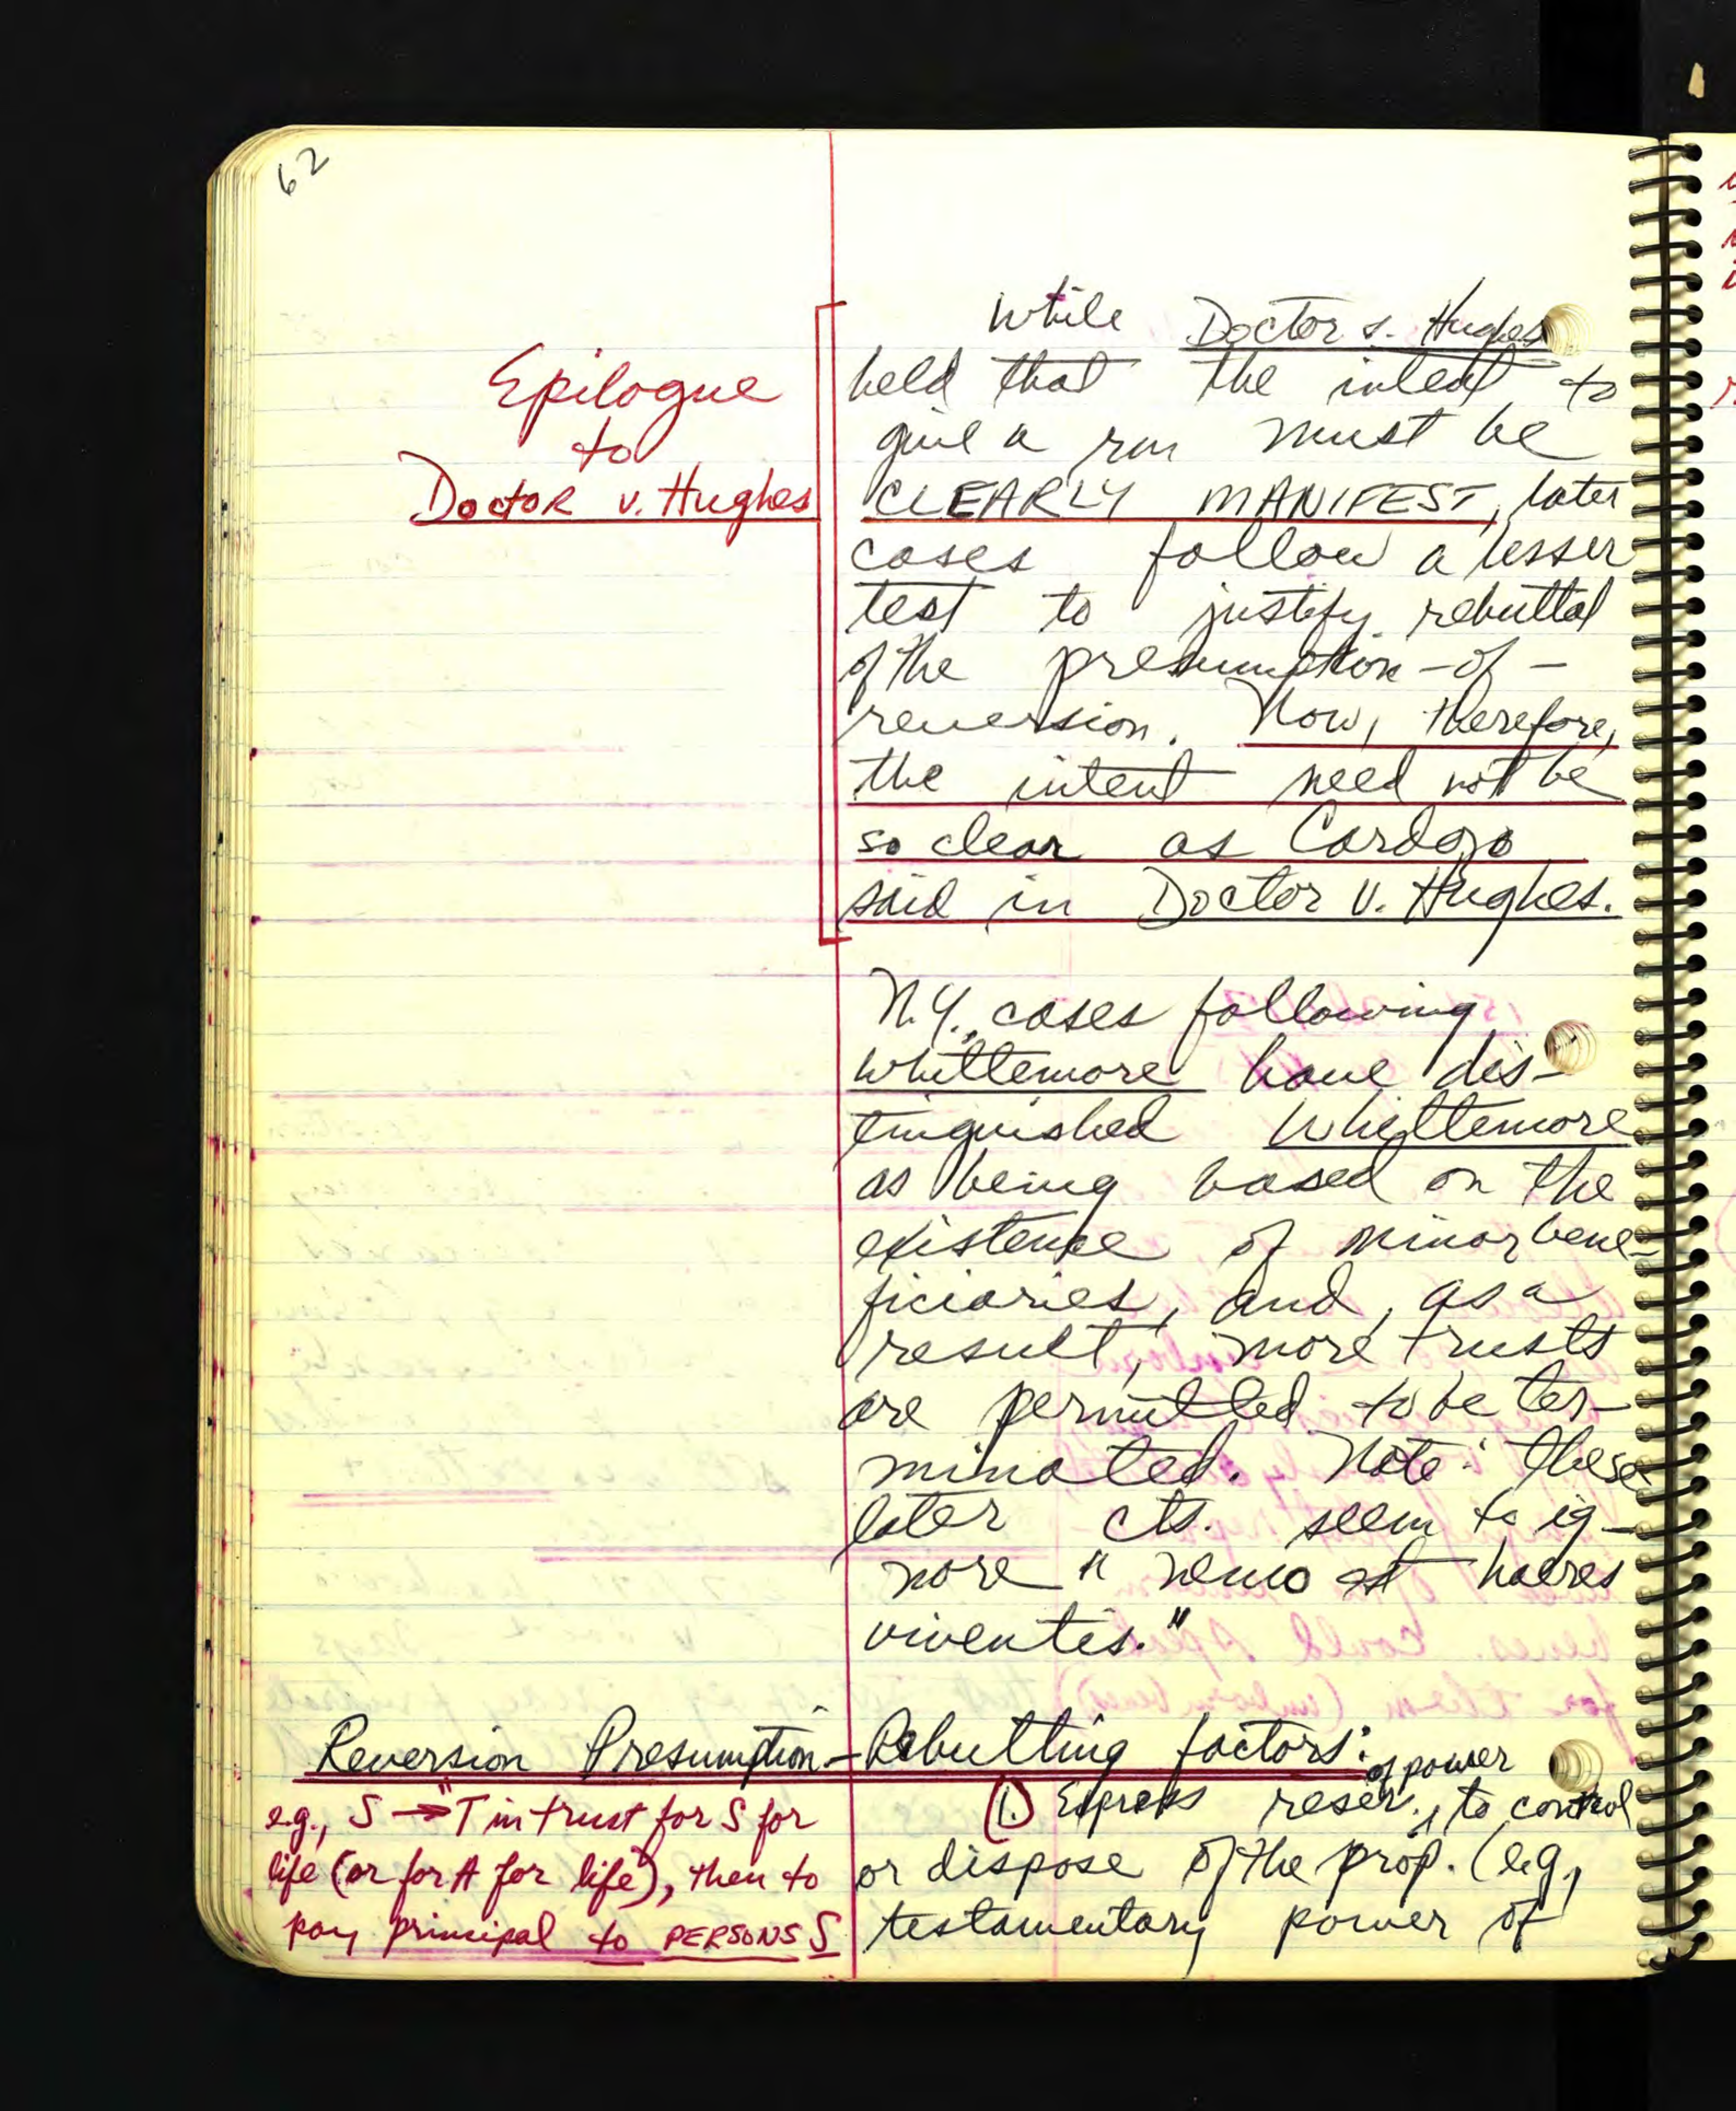 62
Epilogue
to
Doctor v. Hughes
While Doctor v. Hughes
held that the intent to
give a rem must be
CLEARLY MANIFEST, later
cases follow a lesser
test to justify rebuttal
of the presumption-of-
reversion. Now, therefore,
the intent need not be
so clear as Cardozo
said in Doctor v. Hughes.
N.Y. cases following
Whittemore have dis-
tinguished Whittemore
as being based on the
existence of minor bene-
ficiaries, and, as a
result, more trusts
are permitted to be ter-
minated. Note: these
later cts. seem to ig-
nore "nemo est haeres
viventis."
Reversion Presumption - Rebutting factors:
e.g., S → "T in trust for S for
life (or for A for life), then to
pay principal to PERSONS S
of power
1. Express reser. to control
or dispose of the prop. (e.g.,
testamentary power of